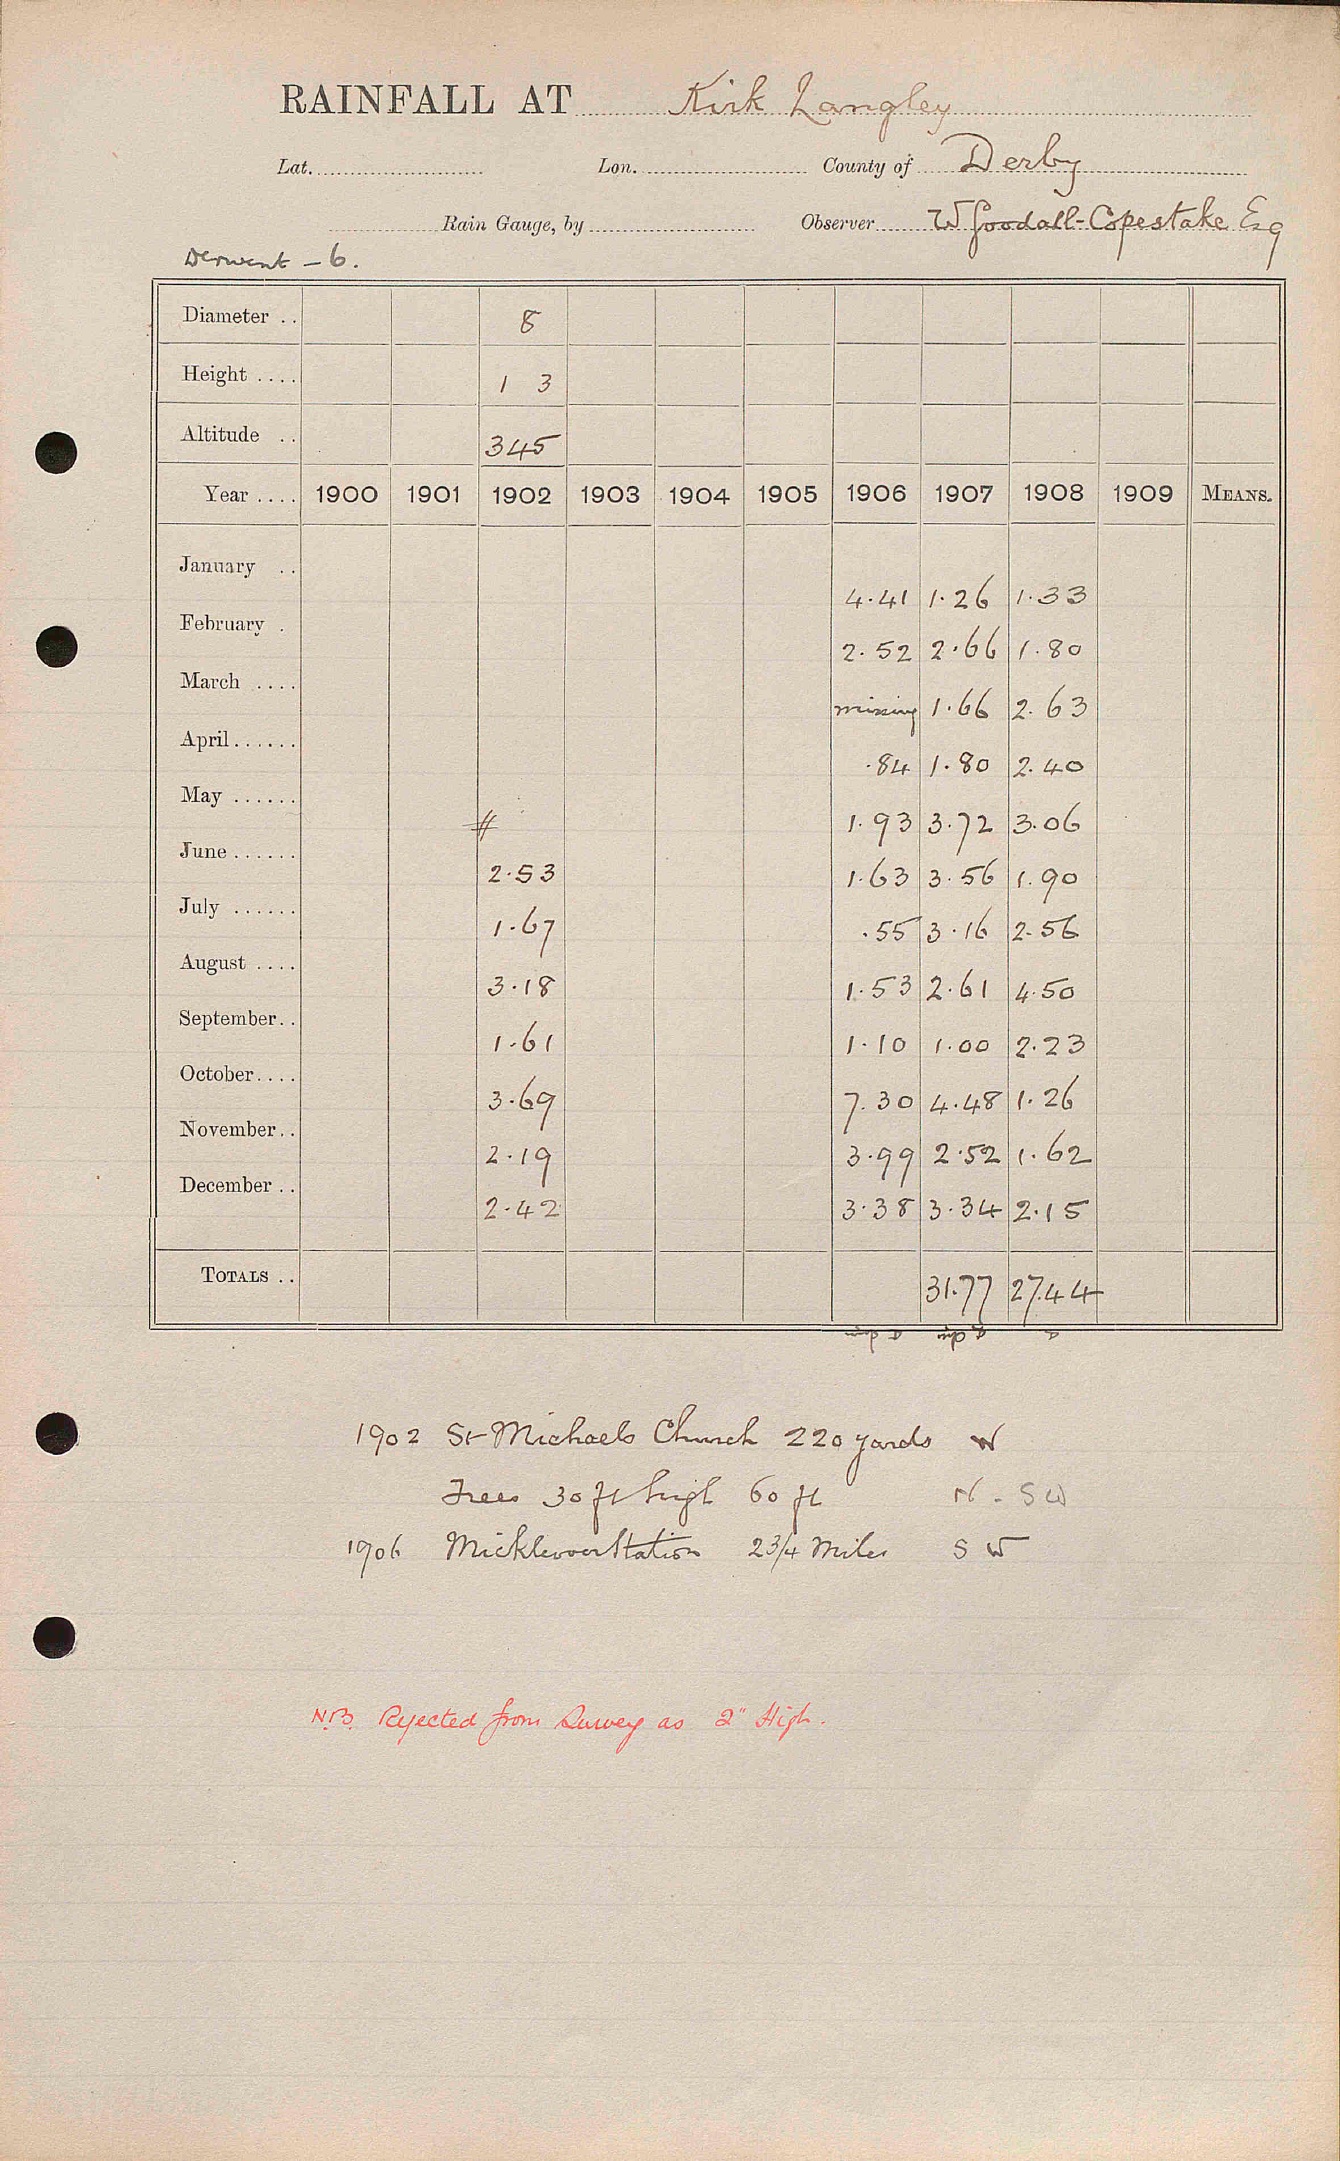 RAINFALL AT Kirk Langley
Lat. Lon. County of Derby
Rain Gauge, by Observer W Goodall-Copestake Esq
Derwent - 6.
Diameter .. 8
Height .... 1 3
Altitude .. 345
Year .... 1900 1901 1902 1903 1904 1905 1906 1907 1908 1909 MEANS.
January .. 4.41 1.26 1.33
February . 2.52 2.66 1.80
March .... missing 1.66 2.63
April...... .84 1.80 2.40
May ...... # 1.93 3.72 3.06
June ...... 2.53 1.63 3.56 1.90
July ...... 1.67 .55 3.16 2.56
August .... 3.18 1.53 2.61 4.50
September.. 1.61 1.10 1.00 2.23
October.... 3.69 7.30 4.48 1.26
November.. 2.19 3.99 2.52 1.62
December .. 2.42 3.38 3.34 2.15
TOTALS .. 31.77 27.44
1902 St Michaels Church 220 yards W
Trees 30 ft high 60 ft N - SW
1906 Mickleover Station 2 3/4 Miles S W
N.B. Rejected from Survey as 2" High.